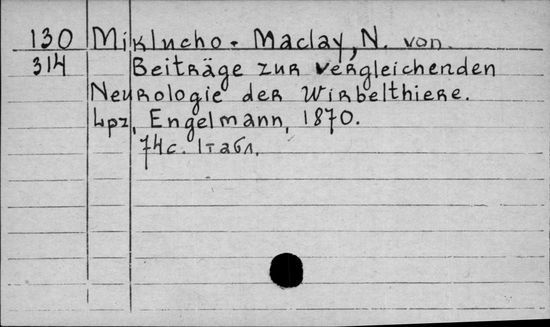 130 Miklucho-Maclay, N. von.
314 Beiträge zur vergleichenden
Neurologie der Wirbelthiere.
Lpz, Engelmann, 1870.
74с. 1табл.